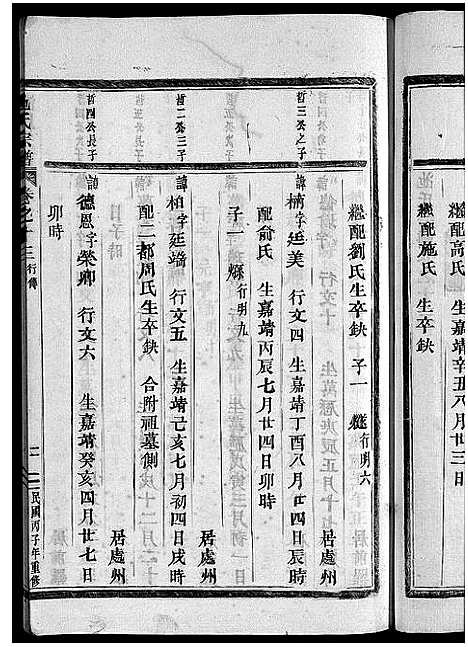 繼配高氏 生嘉靖辛丑八月廿三日
繼配施氏 生卒缺
繼配劉氏生卒缺 子一 行明六
居處州
哲三公之子
諱柄字廷美 行文四 生嘉靖丁酉八月廿四日辰時
配俞氏 生嘉靖丙辰七月廿四日卯時
子一 行明九
居處州
哲二公三子
諱柏字廷塙 行文五 生嘉靖己亥七月初四日戌時
配二都周氏生卒缺 合附祖墓側
居處州
哲四公長子
諱德恩字榮卿 行文六 生嘉靖癸亥四月廿七日
卯時
氏宗譜 卷之十三 行傳
民國丙子年重修